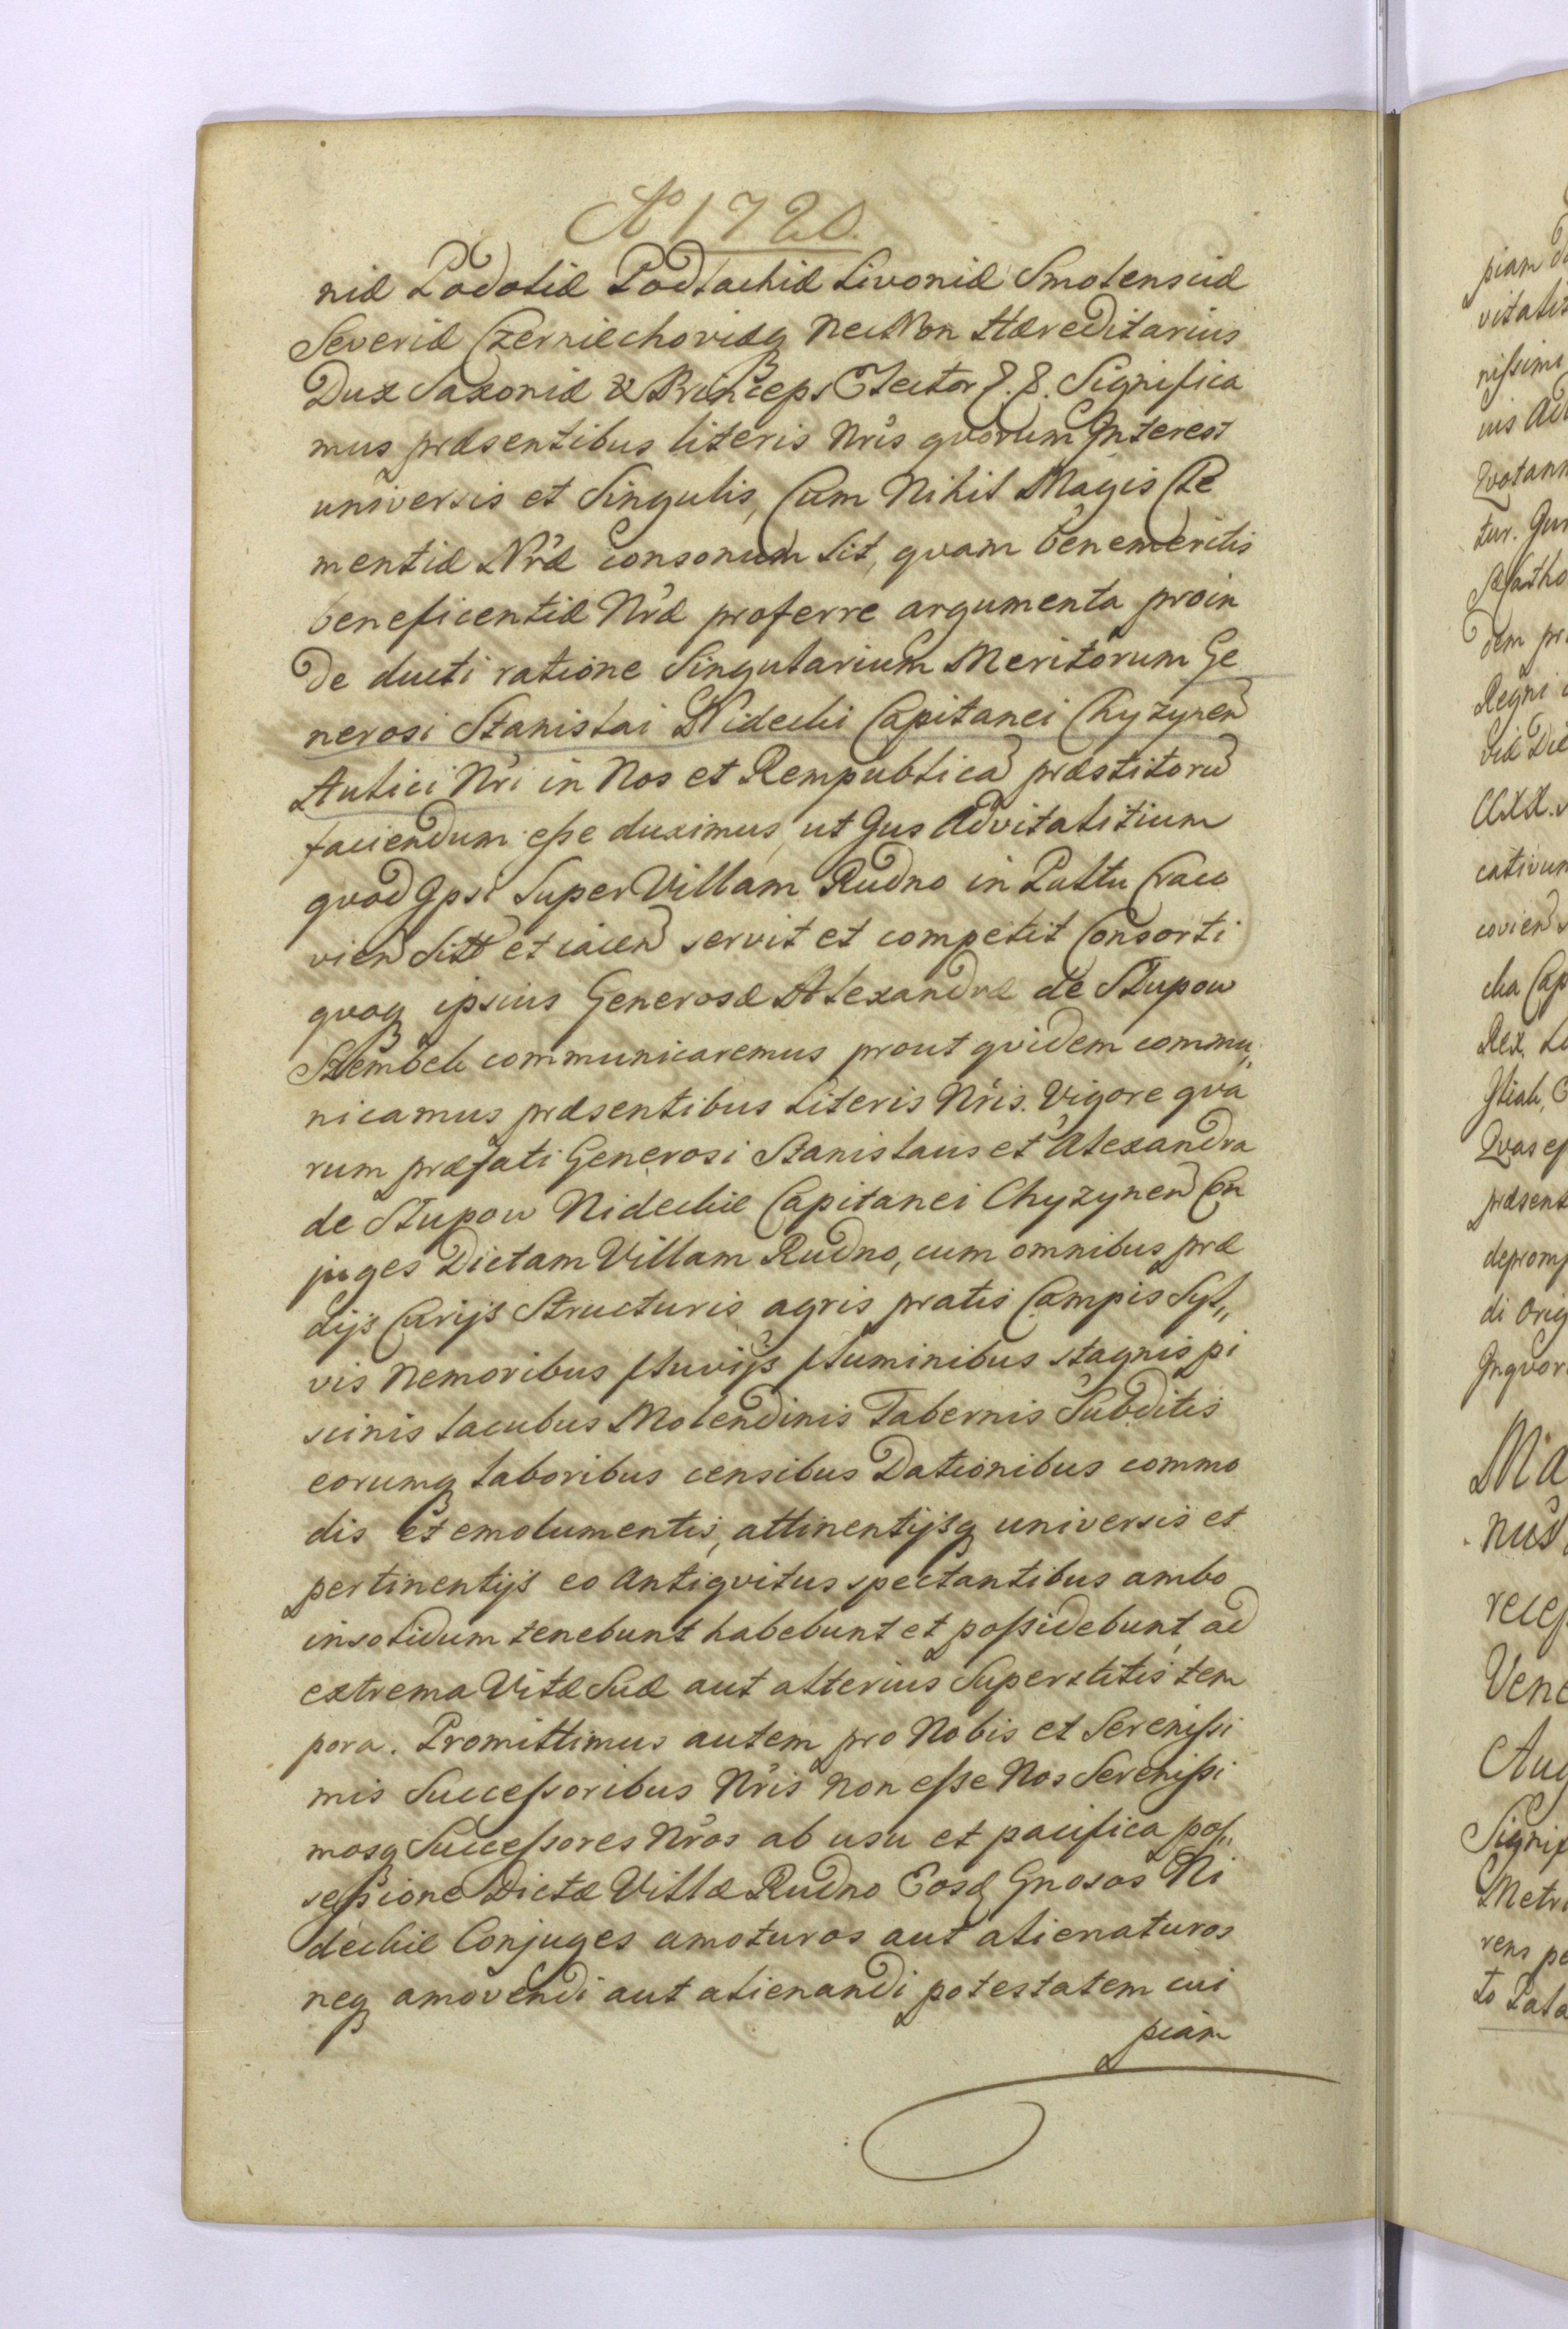 Aº 1720.
niæ Podoliæ Podlachiæ Livoniæ Smolensciæ
Severiæ Czerniechoviæq Nec Non Hæreditarius
Dux Saxoniæ & Princeps Elector &. &. Significa
mus præsentibus literis Nris qvorum Interest
universis et Singulis, Cum Nihil Magis Cle
mentiæ Nræ consonum sit, qvam benemeritis
beneficentiæ Nræ proferre argumenta proin
de ducti ratione Singularium Meritorum Ge
nerosi Stanislai Nidecki Capitanei Chyzynen
Aulici Nri in Nos et Rempublica præstitoru
faciendum esse duximus, ut Jus Advitalitium
qvod Ipsi Super Villam Rudno in Pallu Craco
vien Sitt et iacen servit et competit Consorti
qvoq ipsius Generosæ Alexandræ de Slupow
Szembek communicaremus prout qvidem commu,,
nicamus præsentibus Literis Nris. Vigore qva
rum præfati Generosi Stanislaus et Alexandra
de Slupow Nideckie Capitanei Chyzynen Con
juges Dictam Villam Rudno, cum omnibus præ
dijs Curijs Structuris agris pratis Campis Syl,,
vis Nemoribus fluvijs fluminibus stagnis pi
scinis lacubus Molendinis Tabernis Subditis
eorumq laboribus censibus Dationibus commo
dis et emolumentis, attinentijsq universis et
pertinentijs eo antiqvitus spectantibus ambo
insolidum tenebunt habebunt et possidebunt, ad
extrema Vitæ Suæ aut alterius Superstitis tem
pora. Promittimus autem pro Nobis et Serenissi
mis Successoribus Nris non esse Nos Serenissi
mosq Successores Nros ab usu et pacifica pos,,
sessione Dictæ Villæ Rudno Eosd Gnosos Ni
deckie Conjuges amoturos aut alienaturos
neq amovendi aut alienandi potestatem cui
piam